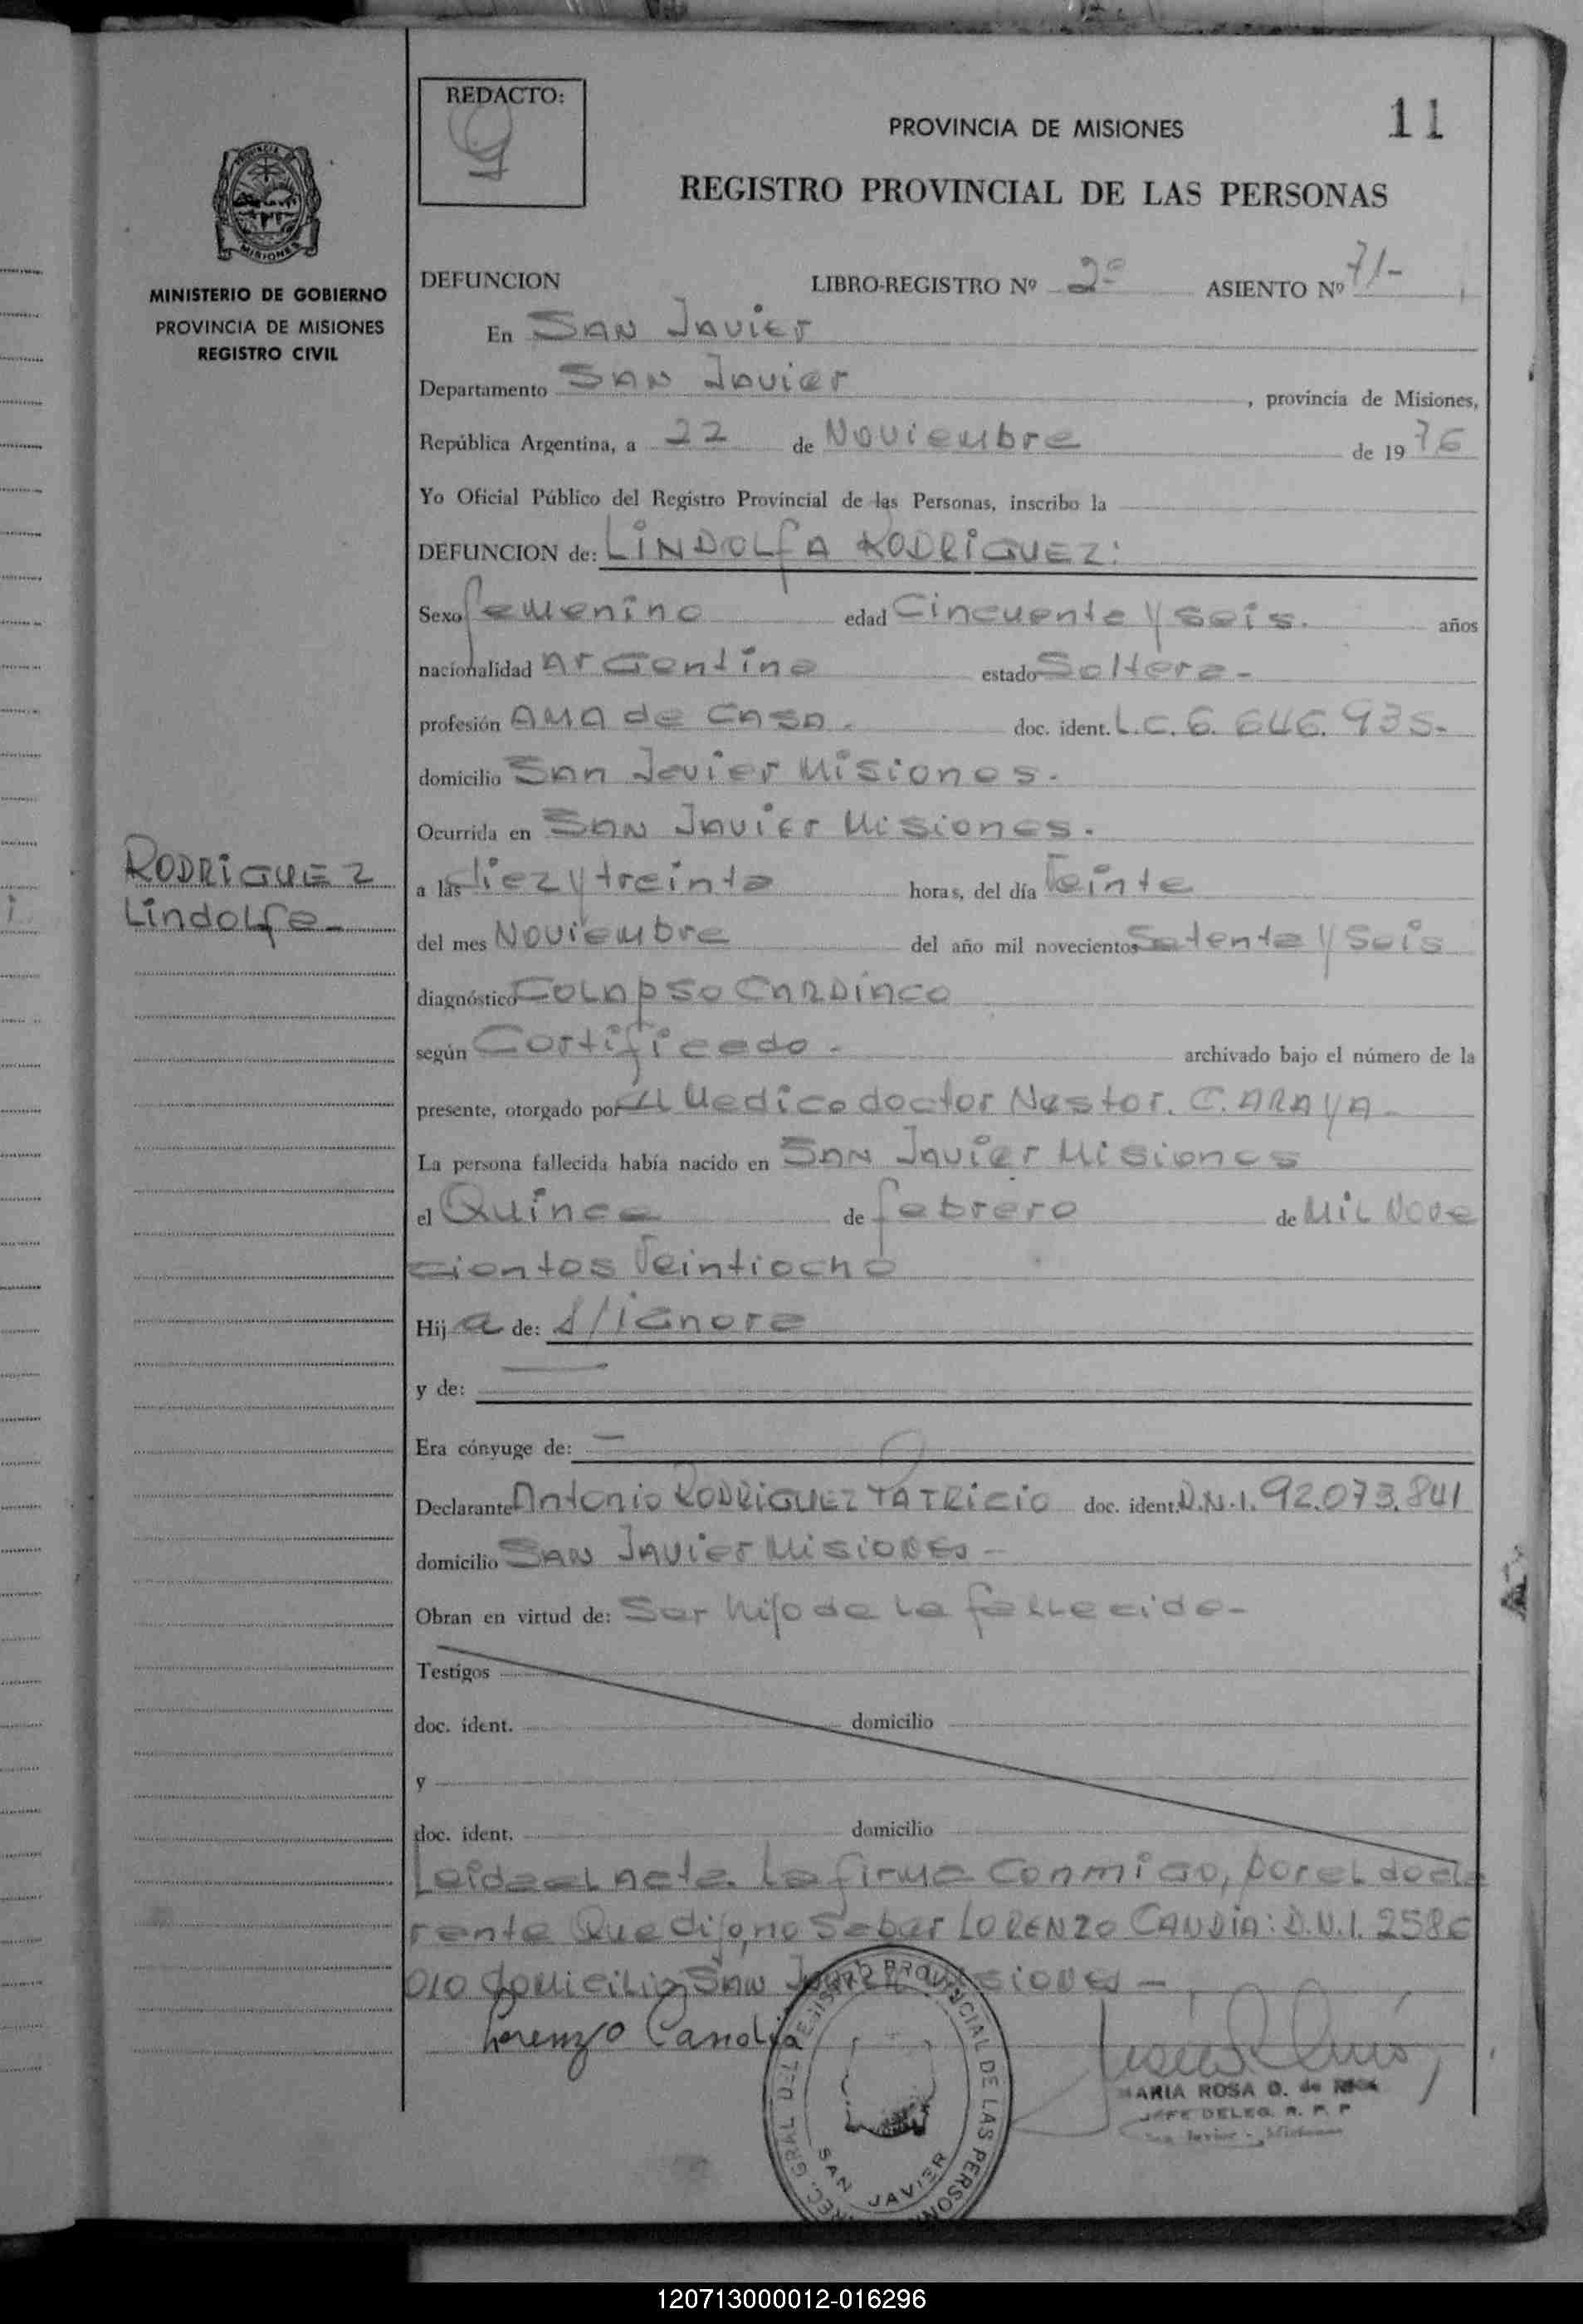 REDACTO:
PROVINCIA DE MISIONES
11
REGISTRO PROVINCIAL DE LAS PERSONAS
PROVINCIA DE MISIONES
MINISTERIO DE GOBIERNO
PROVINCIA DE MISIONES
REGISTRO CIVIL
DEFUNCION LIBRO-REGISTRO Nº 2º ASIENTO Nº 71-
En SAN JAVIER
Departamento SAN Javier, provincia de Misiones,
República Argentina, a 22 de Noviembre de 1976
Yo Oficial Público del Registro Provincial de las Personas, inscribo la
DEFUNCION de: LINDOLFA RODRIGUEZ:
Sexo femenino edad Cincuenta y seis. años
nacionalidad Argentina estado Soltera-
profesión AMA de CASA. doc. ident. L.C. 6.646.935-
domicilio San Javier Misiones.
Ocurrida en SAN Javier Misiones.
RODRIGUEZ
Lindolfa-
a las diez y treinta horas, del día Veinte
del mes Noviembre del año mil novecientos Setenta y Seis
diagnóstico COLAPSO CARDIACO
según Certificado- archivado bajo el número de la
presente, otorgado por el Medico doctor Nestor. C. ARAYA-
La persona fallecida había nacido en SAN Javier Misiones
el Quince de febrero de Mil Nove
cientos Veintiocho
Hija de: S/ignora
y de: —
Era cónyuge de: —
Declarante Antonio RODRIGUEZ PATRICIO doc. ident. D.N.I. 92.073.841
domicilio SAN JAVIER Misiones-
Obran en virtud de: Ser hijo de la fallecida-
Testigos
doc. ident. domicilio
y
doc. ident. domicilio
Leida el Acta. La firma Conmigo, por el decla
rante Que dijo, no Saber LORENZO CANDIA: D.N.I. 2586
010 domicilio San Javier Misiones-
Lorenzo Candia
DIREC. GRAL DEL REGISTRO PROVINCIAL DE LAS PERSONAS
SAN JAVIER
MARIA ROSA D. de
JEFE DELEG. R. P. P
San Javier - Misiones
120713000012-016296